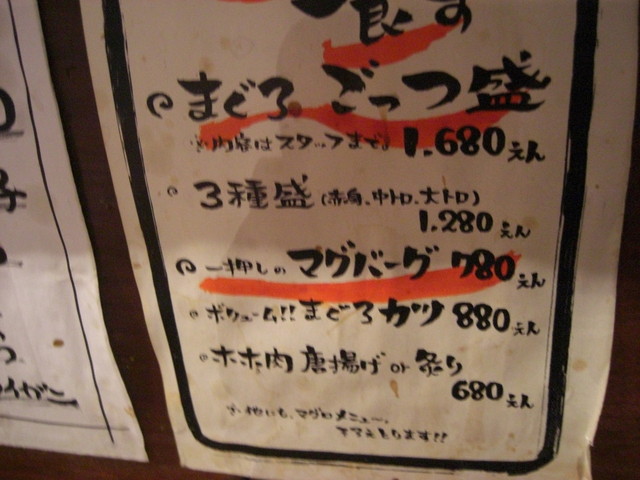 食す
まぐろ ごっつ盛
※内容はスタッフまで 1,680えん
3種盛(赤身、中トロ、大トロ)
1,280えん
一押しの マグバーグ 780えん
ボリューム!! まぐろカツ 880えん
ホホ肉 唐揚げ or 炙り
680えん
※他にも、マグロメニュー、